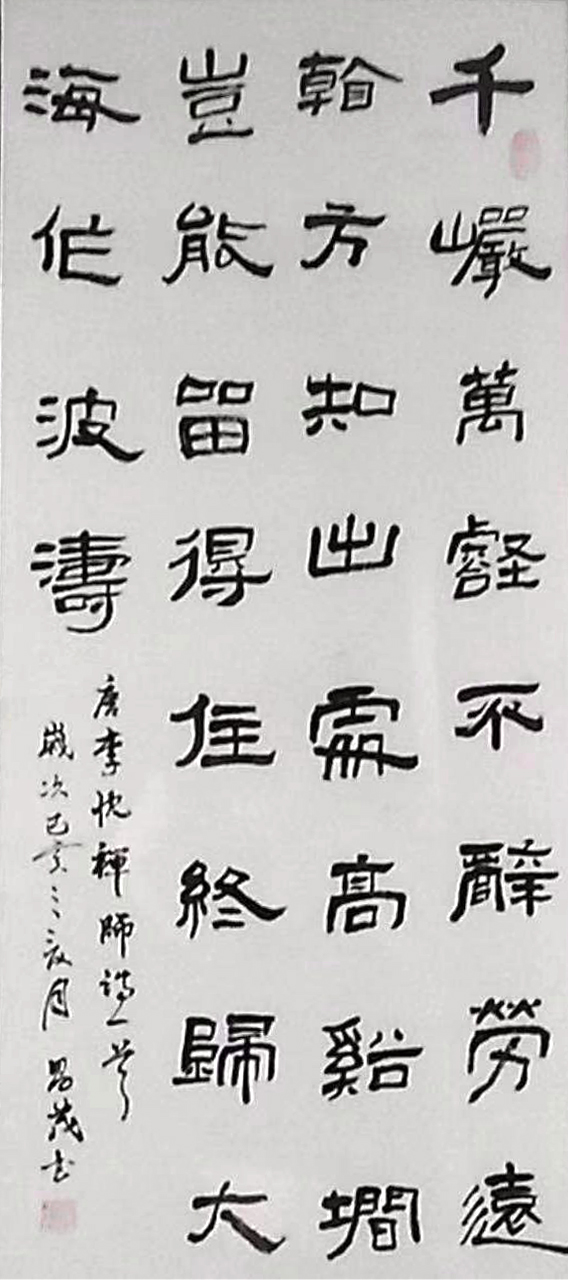 千巖萬壑不辭勞遠
看方知出處高谿澗
豈能留得住終歸大
海作波濤
唐李忱禪師詩一首
歲次己亥之夏月 昌茂書